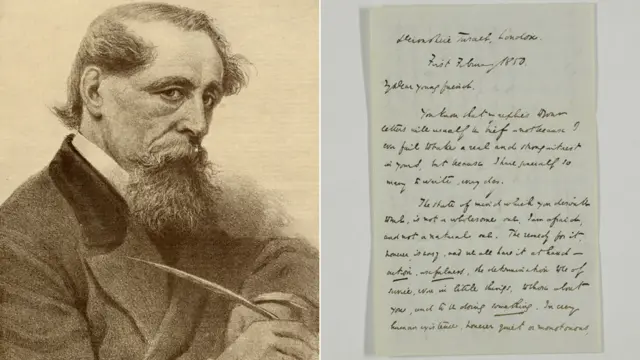 Devonshire Terrace, London.
First February 1850.
My dear young friend.
You know that my replies to your
letters will usually be brief – not because I
ever fail to take a real and strong interest
in yours, but because I have generally so
many to write, every day.
The state of mind which you describe
to me, is not a wholesome one, I am afraid,
and not a natural one. The remedy for it,
however, is easy, and we all have it at hand –
action, usefulness, the determination to be of
service, even in little things, to those about
you, and to be doing something. In every
human existence, however quiet or monotonous